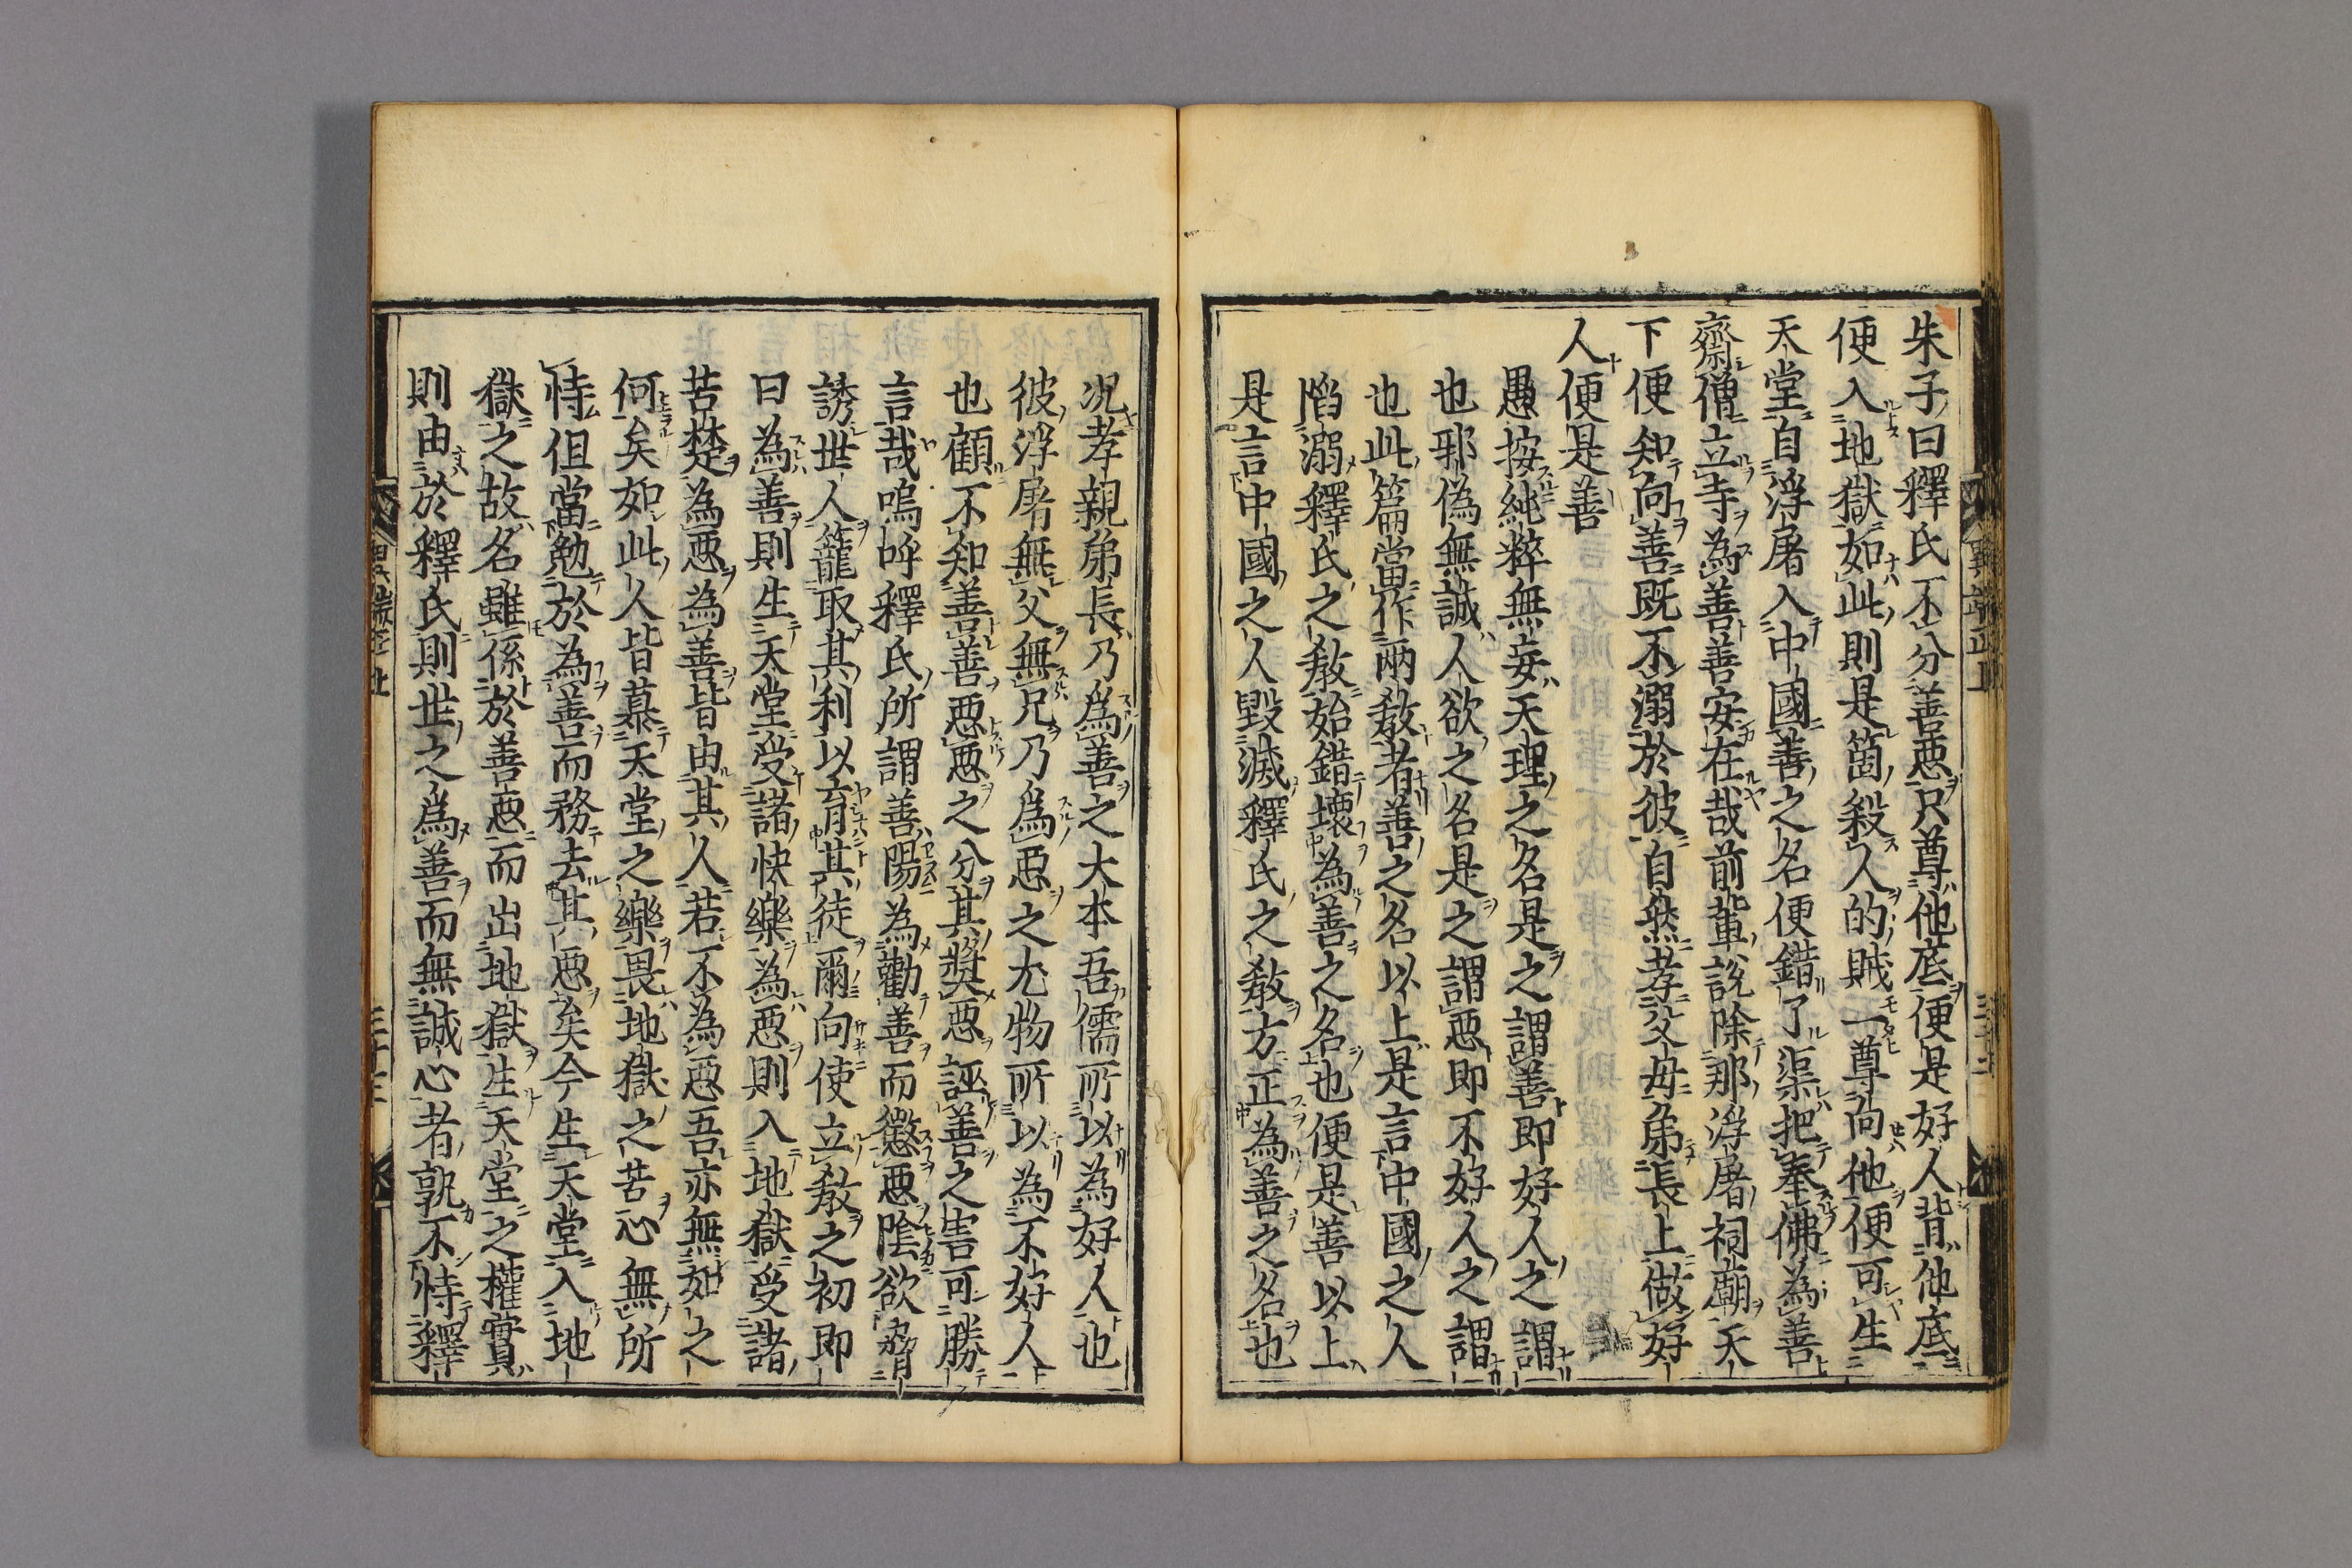 朱子曰釋氏不分善惡只尊他底便是好人背他底
便入地獄如此則是箇殺人的賊一尊向他便可生
天堂自浮屠入中國善之名便錯了渠把奉佛為善
齋僧立寺為善善安在哉前輩說除那浮屠祠廟天
下便知向善既不溺於彼自然孝父母弟長上做好
人便是善
愚按純粹無妄天理之名是之謂善即好人之謂
也邪偽無誠人欲之名是之謂惡即不好人之謂
也此篇當作兩教者善之名以上是言中國之人
惂溺釋氏之教始錯壞為善之名也便是善以上
是言中國之人毀滅釋氏之教方正為善之名也
况孝親弟長乃為善之大本吾儒所以為好人也
彼浮屠無父無兄乃為惡之尤物所以為不好人
也顧不知善善惡惡之分其奬惡誣善之害可勝
言哉嗚呼釋氏所謂善陽為勸善而懲惡陰欲脅
誘世人籠取其利以育其徒爾向使立教之初即
曰為善則生天堂受諸快樂為惡則入地獄受諸
苦楚為惡為善皆由其人若不為惡吾亦無如之
何矣如此人皆慕天堂之樂畏地獄之苦心無所
恃但當勉於為善而務去其惡矣今生天堂入地
獄之故名雖係於善惡而出地獄生天堂之權實
則由於釋氏則世之為善而無誠心者孰不恃釋